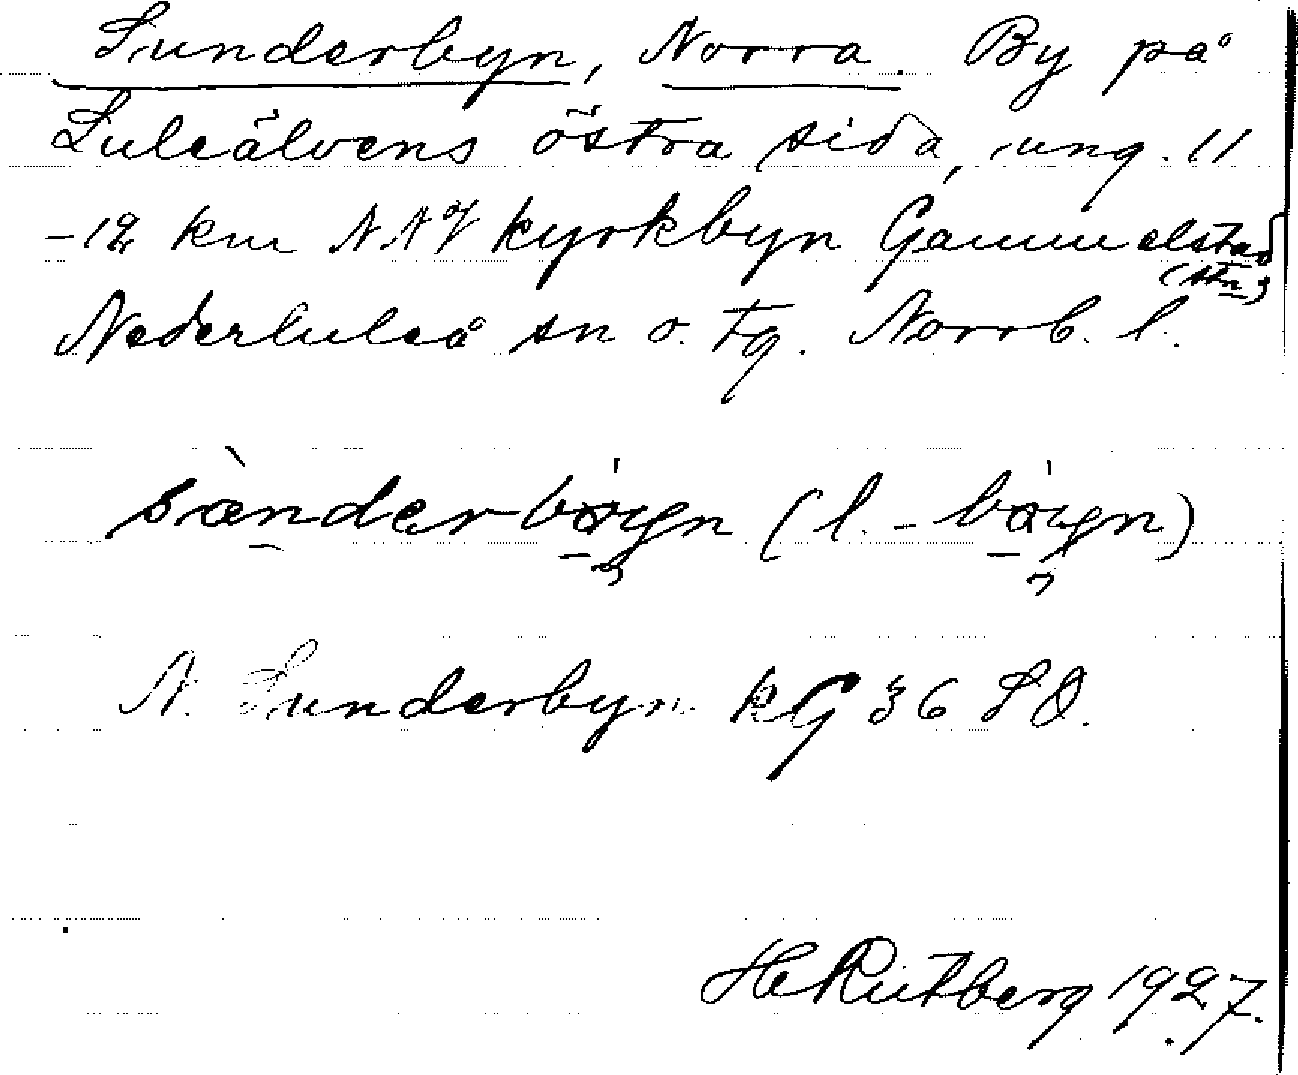 Sunderbyn, Norra. By på
Luleälvens östra sida, ung. 11
-12 km NNV kyrkbyn Gammelstad
(stn)
Nederluleå sn o. tg. Norrb. l.
N. Sunderbyn kG 36 SO.
H Rutberg 1927.